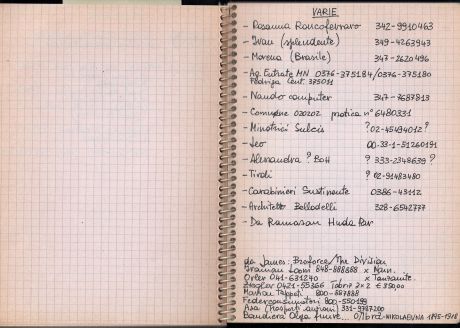 VARIE
- Rosanna Roncoferraro 342-9910463
- Ivan (splendente) 349-4263943
- Morena (Brasile) 347-2620496
- Ag. Entrate MN 0376-375184/0376-375180
Cent. 375051
- Nando computer 347-7687813
- Comune 020202 pratica n° 6480331
- Minotrici Sulcis ?02-45494012?
- Leo 00-33-1-51260191
- Alessandra ? Bott ? 333-2348639?
- Tivoli ? 02-91483480
- Carabinieri Sustinente 0386-43112
- Architetto Belladelli 328-6542777
- Da Ramazan Huda Par
da James: Bioforce/ Division
848-888888 x
Orler 041-631270 x Tanzanite.
0421-55366 Tabriz 2x2 € 350,00
Tappeti 800-887888
Federconsumatori 800-550199
Asa 331-9787200
Bandiera Olga NIKOLAEVNA 1895-1918